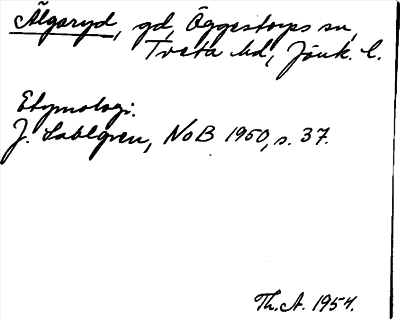 Älgaryd, gd, Öggestorps sn,
Tveta hd, Jönk. l.
Etymologi.
J. Sahlgren, NoB 1950, s. 37.
Th. A. 1954.